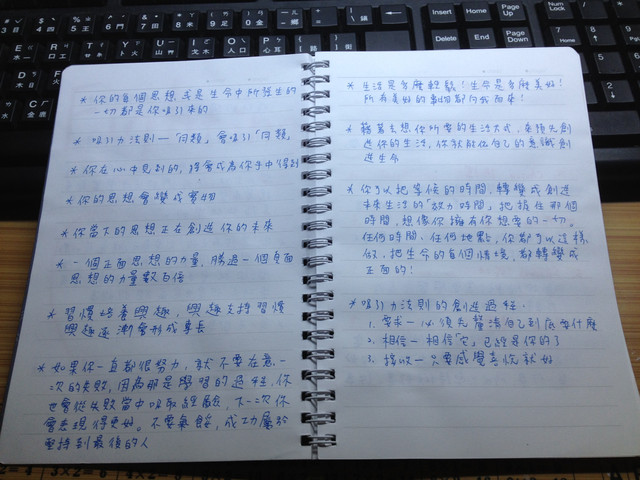 * 你的每個思想或是生命中所發生的
一切都是你吸引來的
* 吸引力法則一「同類」會吸引「同類」
* 你在心中見到的，將會成為你手中得到
* 你的思想會變成實物
* 你當下的思想正在創造你的未來
* 一個正面思想的力量，勝過一個負面
思想的力量數百倍
* 習慣培養興趣，興趣支持習慣
興趣逐漸會形成專長
* 如果你一直都很努力，就不要在意一
次的失敗，因為那是學習的過程，你
也會從失敗當中吸取經驗，下一次你
會表現得更好。不要氣餒，成功屬於
堅持到最後的人
* 生活是多麼輕鬆！生命是多麼美好！
所有美好的事物都向我而來！
* 藉著去想你所要的生活方式，來預先創
造你的生活，你就能從自己的意識創
造生命
* 你可以把等候的時間，轉變成創造
未來生活的「威力時間」把握住那個
時間，想像你擁有你想要的一切。
任何時間、任何地點，你都可以這樣
做。把生命的每個情境，都轉變成
正面的！
* 吸引力法則的創造過程：
1. 要求一必須先釐清自己到底要什麼
2. 相信一相信「它」已經是你的了
3. 接收一只要感覺喜悅就好
Insert
Home
Page
Up
Delete
End
Page
Down
Num
Lock
Ctrl